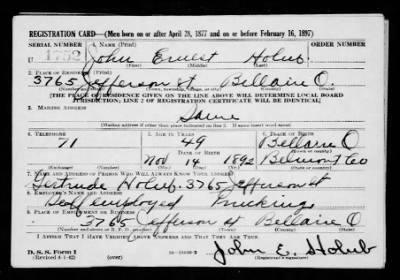 REGISTRATION CARD—(Men born on or after April 28, 1877 and on or before February 16, 1897)
SERIAL NUMBER 1. NAME (Print) ORDER NUMBER
U 1752 John Ernest Holub
(First) (Middle) (Last)
2. PLACE OF RESIDENCE (Print)
3765 Jefferson St Bellaire O.
[THE PLACE OF RESIDENCE GIVEN ON THE LINE ABOVE WILL DETERMINE LOCAL BOARD
JURISDICTION; LINE 2 OF REGISTRATION CERTIFICATE WILL BE IDENTICAL]
3. MAILING ADDRESS
Same
[Mailing address if other than place indicated on line 2. If same insert word same]
4. TELEPHONE 5. AGE IN YEARS 6. PLACE OF BIRTH
71 49 Bellaire O
DATE OF BIRTH (Town or county)
Nov 14 1892 Belmont Co
(Exchange) (Number) (Mo.) (Day) (Yr.) (State or country)
7. NAME AND ADDRESS OF PERSON WHO WILL ALWAYS KNOW YOUR ADDRESS
Gertrude Holub 3765 Jefferson St
8. EMPLOYER'S NAME AND ADDRESS
Self employed Trucking
9. PLACE OF EMPLOYMENT OR BUSINESS
3765 Jefferson St Bellaire O
I AFFIRM THAT I HAVE VERIFIED ABOVE ANSWERS AND THAT THEY ARE TRUE.
John E. Holub
D. S. S. Form 1
(Revised 4-1-42) (over) (Registrant's signature)